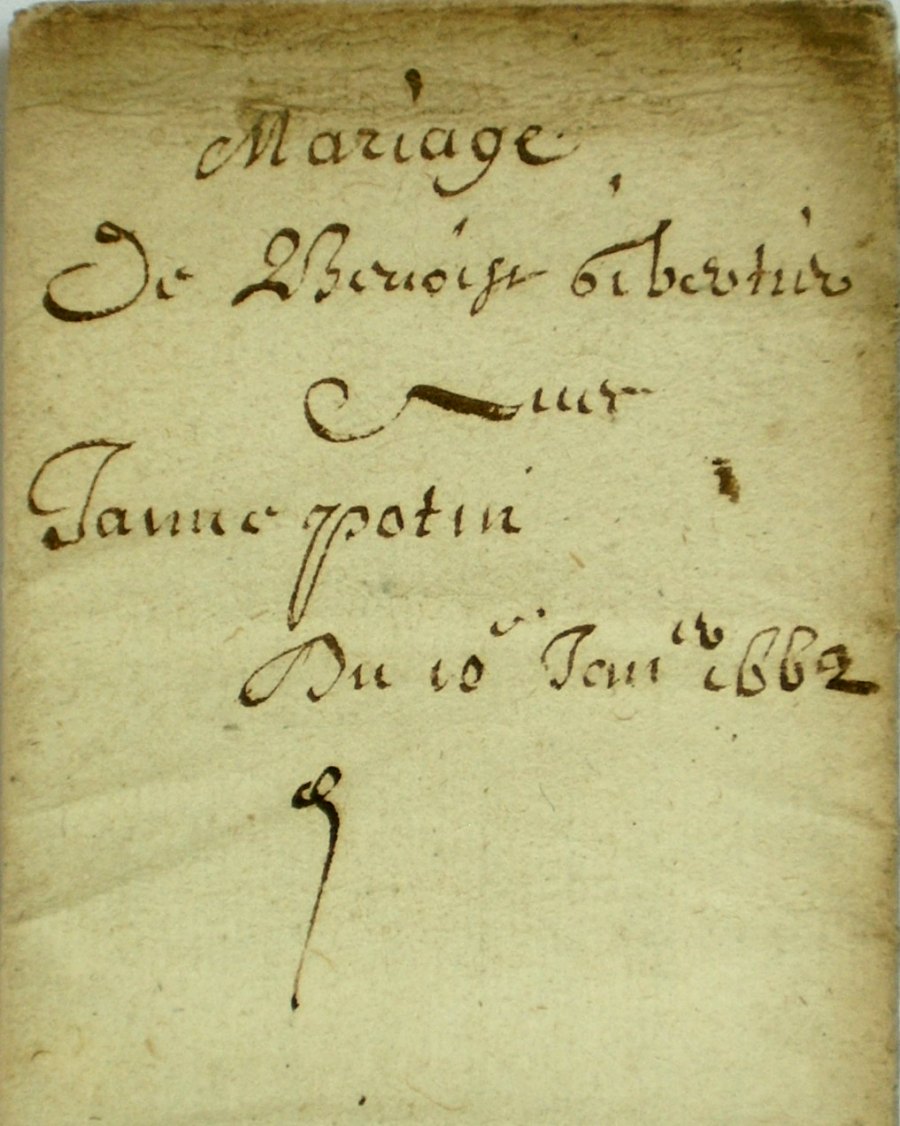 Mariage
De Benoist Gibertier
Avec
Janne potin
Du 10e Janier 1662